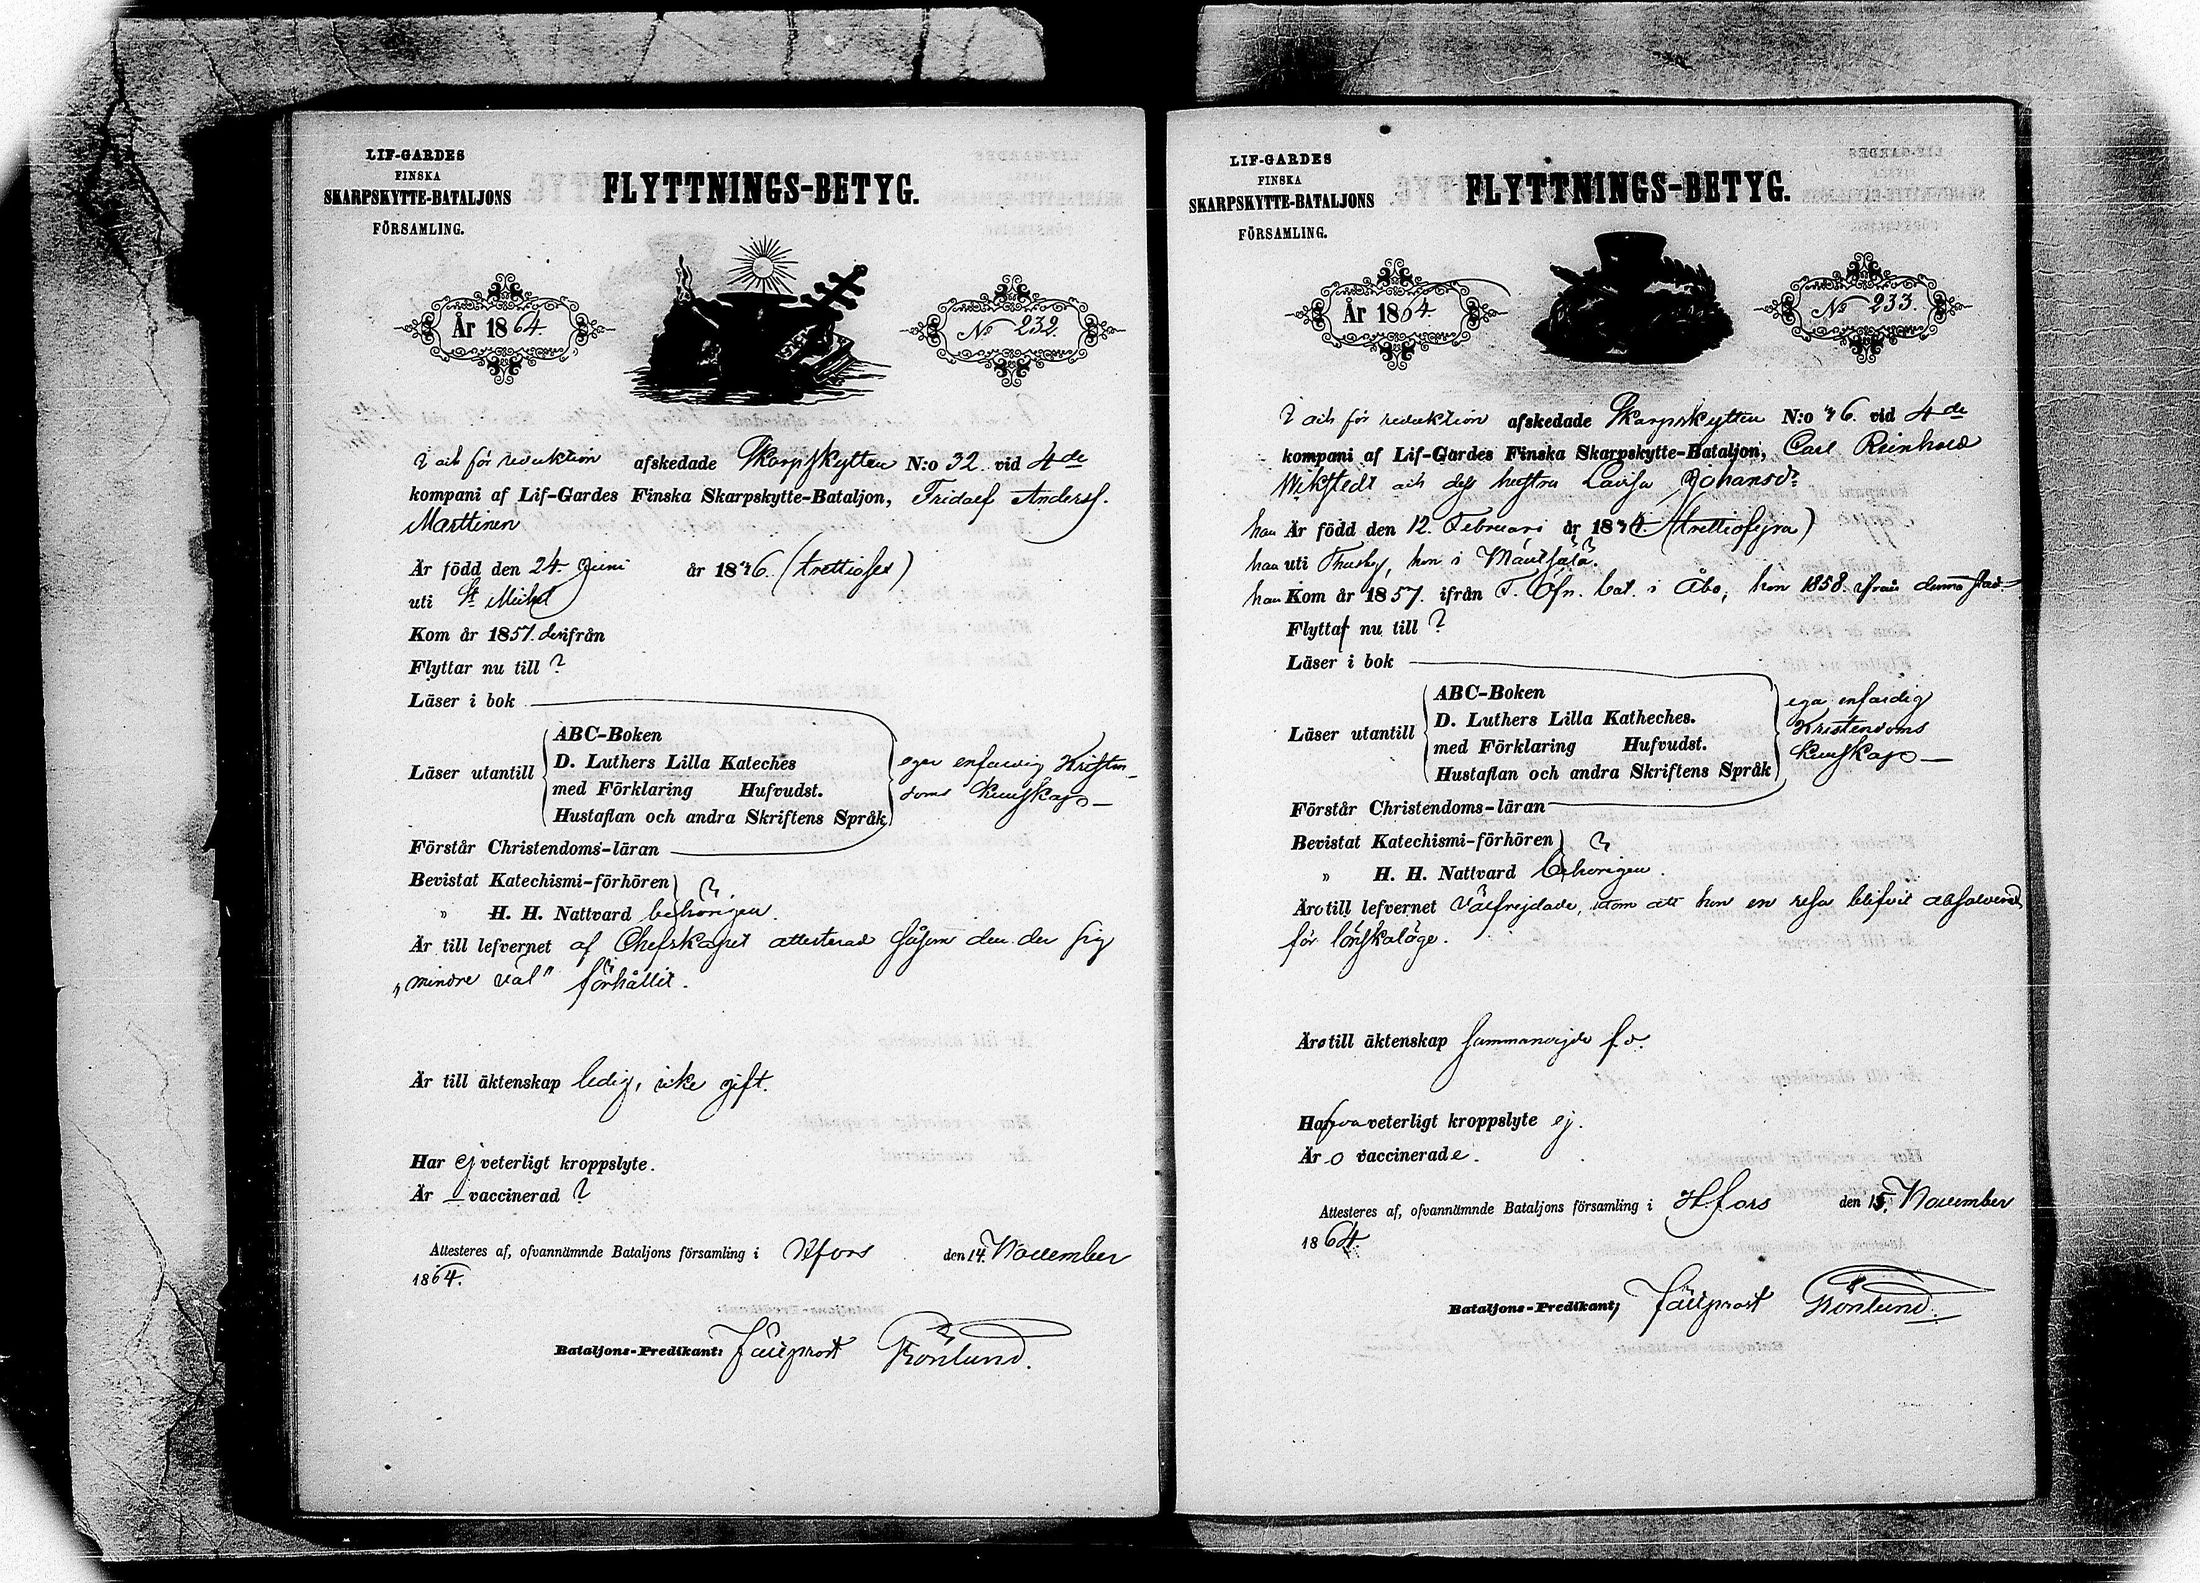 LIF-GARDES
FINSKA
SKARPSKYTTE-BATALJONS
FÖRSAMLING.
FLYTTNINGS-BETYG.
År 1864.
No 232.
och för reduktion afskedade Skarpskytten N:o 32. vid 4de
kompani af Lif-Gardes Finska Skarpskytte-Bataljon, Fridolf Anderss.
Marttinen
Är född den 24. Juni år 1836. (trettiosex)
uti St Michel
Kom år 1857. derifrån
Flyttar nu till ?
Läser i bok
Läser utantill
ABC-Boken
D. Luthers Lilla Kateches
med Förklaring Hufvudst.
Hustaflan och andra Skriftens Språk
eger enfaldig Kristen-
doms kunskap
Förstår Christendoms-läran
Bevistat Katechismi-förhören ?
" H. H. Nattvard behörigen.
Är till lefvernet af Chefskapet attesterad såsom den der sig
"mindre väl" förhållit.
Är till äktenskap ledig, icke gift.
Har ej veterligt kroppslyte.
Är – vaccinerad ?
Attesteres af, ofvannämnde Bataljons församling i Hfors den 14. November
1864.
Bataljons-Predikant: Fältprost Rönlund.
LIF-GARDES
FINSKA
SKARPSKYTTE-BATALJONS
FÖRSAMLING.
FLYTTNINGS-BETYG.
År 1864.
No 233.
och för reduktion afskedade Skarpskytten N:o 36. vid 4de
kompani af Lif-Gardes Finska Skarpskytte-Bataljon, Carl Reinhold
Wikstedt och dess hustru Lovisa Johansdr
han Är född den 12. Februari år 1834 (trettiofyra)
han uti Thusby, hon i Mäntsälä.
han Kom år 1857. ifrån F. Öfn. bat. i Åbo, hon 1858. ifrån denna stad
Flytta nu till ?
Läser i bok
Läser utantill
ABC-Boken
D. Luthers Lilla Katheches.
med Förklaring Hufvudst.
Hustaflan och andra Skriftens Språk
ega enfaldig
Kristendoms
kunskap
Förstår Christendoms-läran
Bevistat Katechismi-förhören ?
" H. H. Nattvard behörigen.
Äro till lefvernet välfrejdade, utom att hon en resa blifvit absolverad
för lönskaläge.
Äro till äktenskap sammanvigde f. o.
Hafva veterligt kroppslyte ej.
Äro vaccinerade.
Attesteres af, ofvannämnde Bataljons församling i H.fors den 15. November
1864.
Bataljons-Predikant, Fältprost Rönlund.